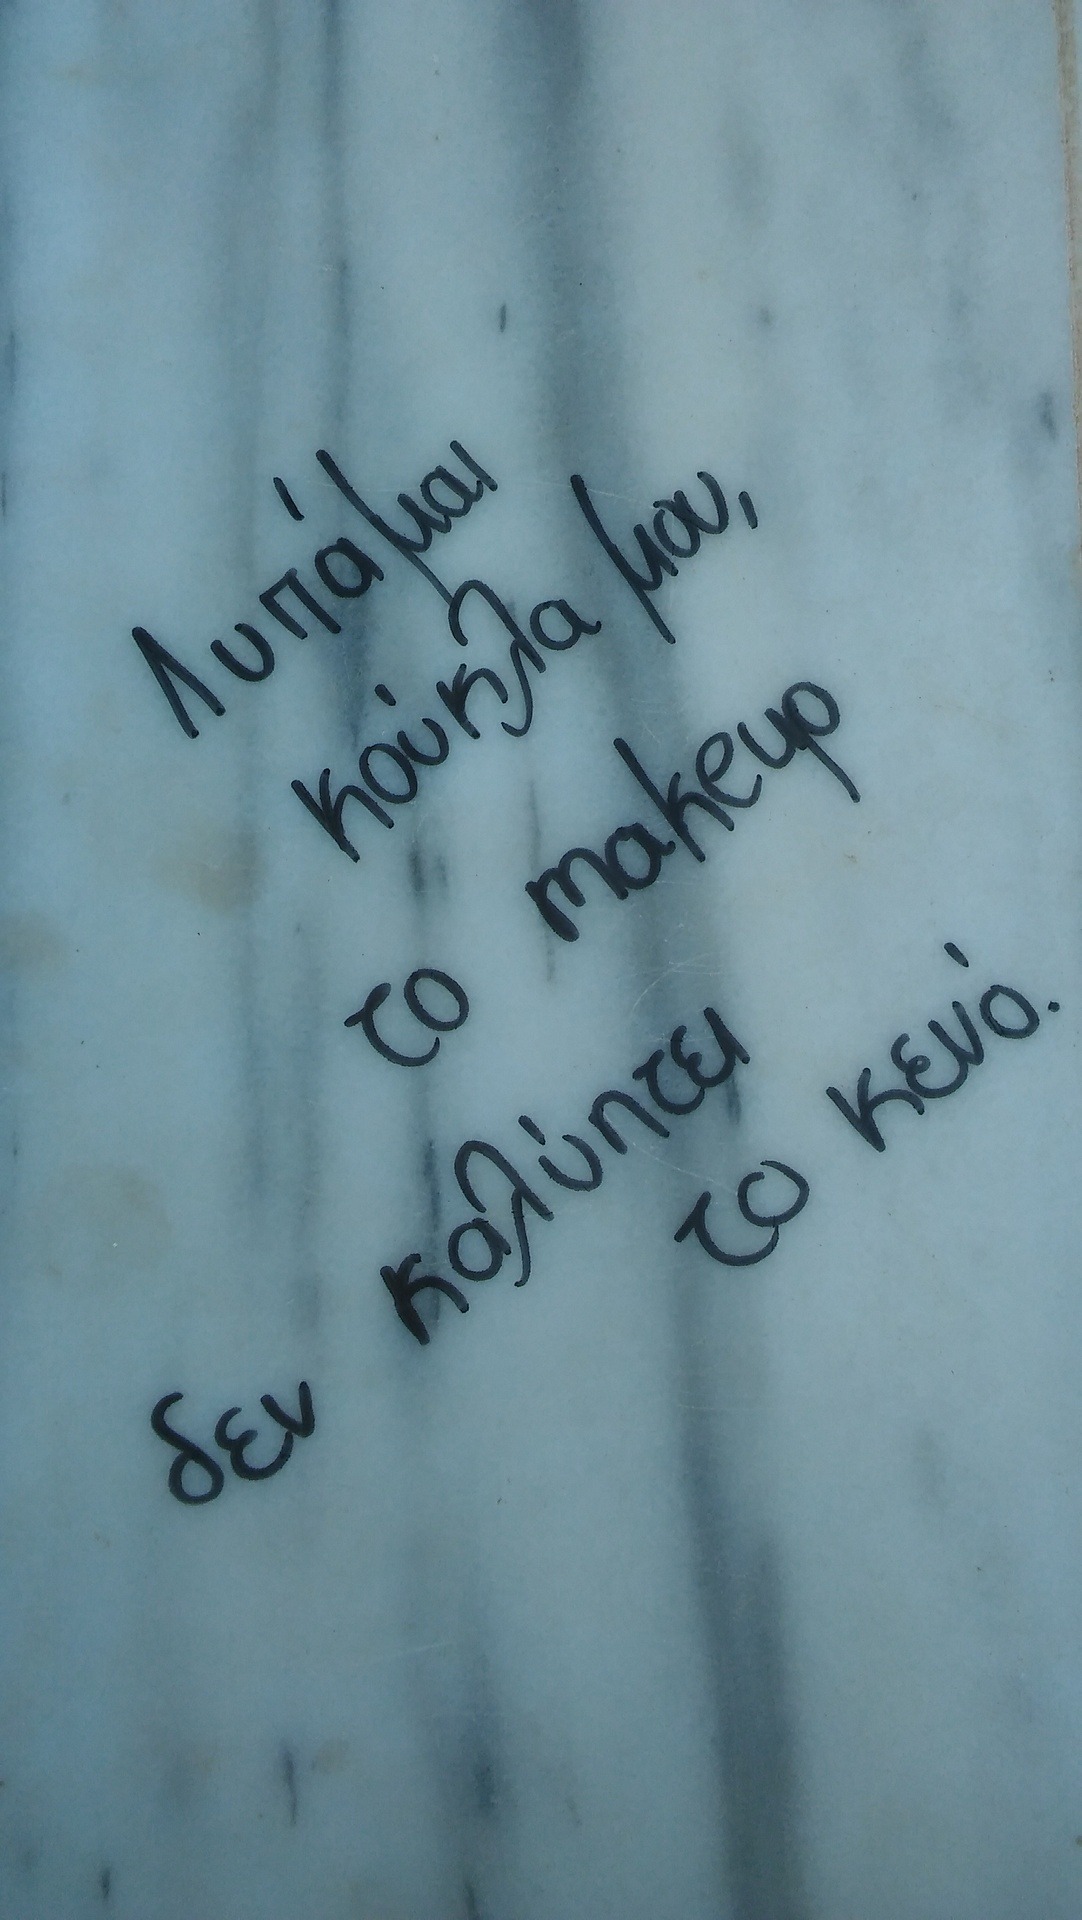 Λυπάμαι
κούκλα μου,
το makeup
δεν καλύπτει
το κενό.